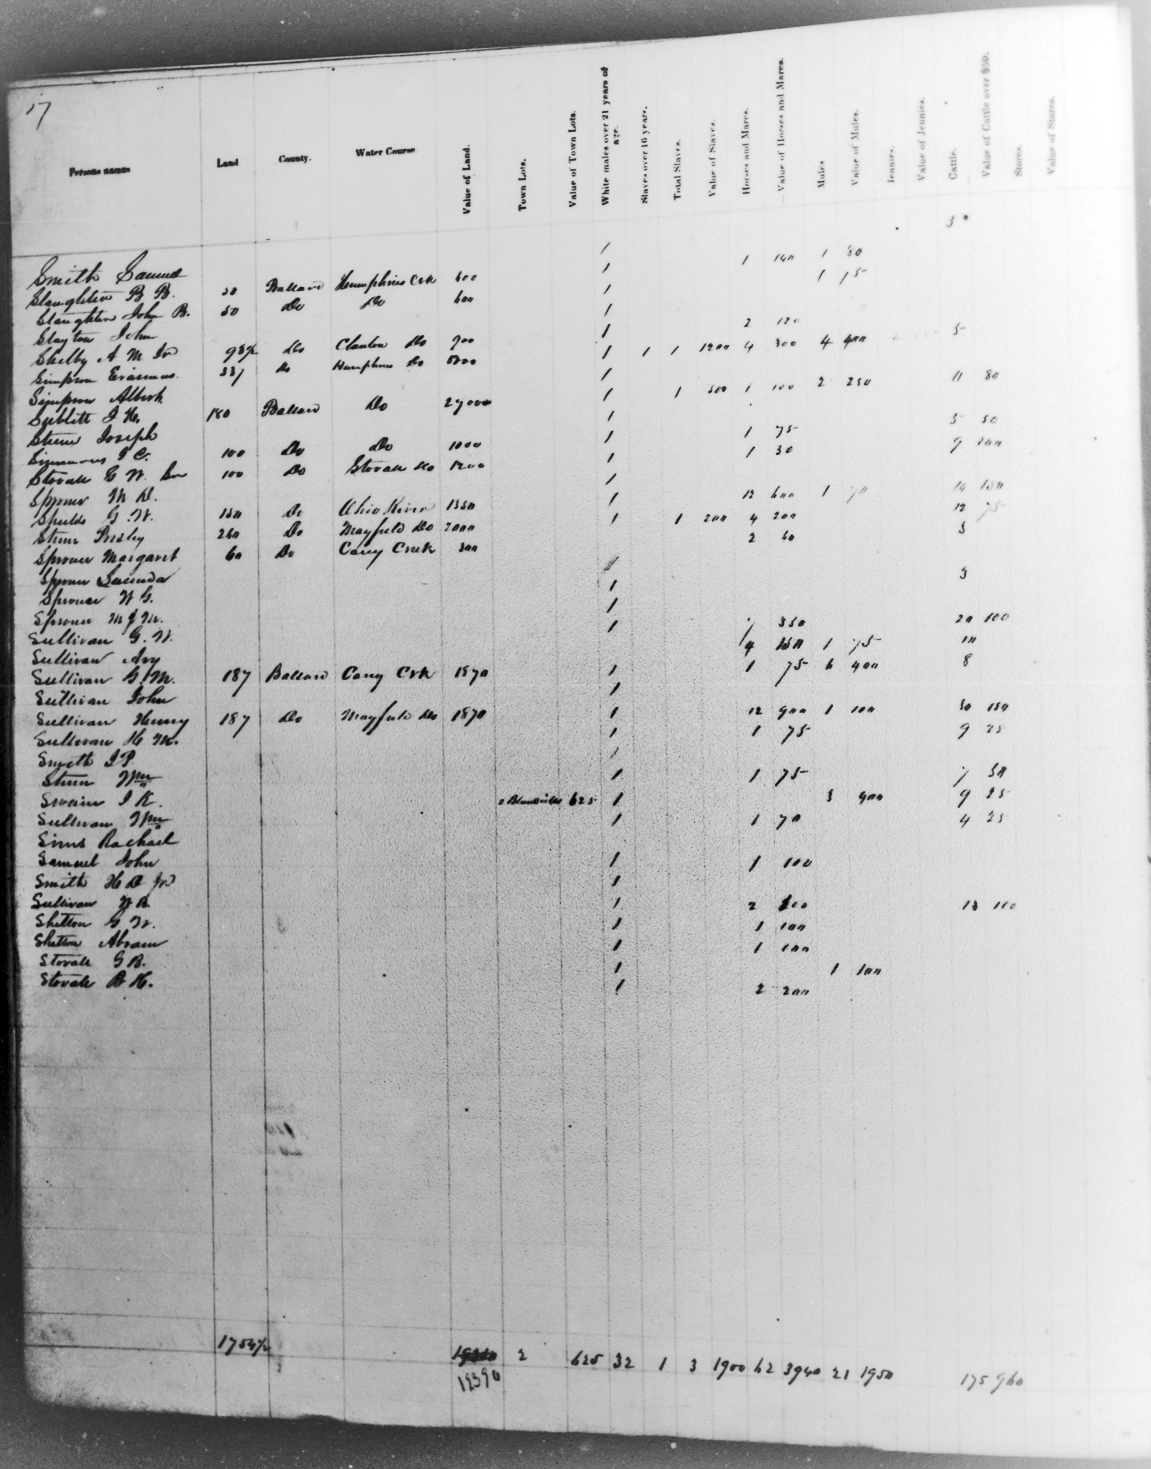 17
Persons names Land County. Water Course Value of Land. Town Lots. Value of Town Lots. White males over 21 years of age. Slaves over 16 years. Total Slaves. Value of Slaves. Horses and Mares. Value of Horses and Mares. Mules Value of Mules. Jennies. Value of Jennies. Cattle. Value of Cattle over $50. Stores. Value of Stores.
Smith Samuel 1 1 140 1 80
Slaughter B. B. 50 Ballard Humphries Crk 600 1 1 75
Slaughter John B. 50 Do Do 600 1
Slayton John 1 2 120
Shelby A M Jr 98½ Do Clanton Do 900 1 1 1 1200 4 300 4 400 5
Simpson Erasmus 331 Do Humphries Do 1
Simpson Albert 1 1 500 1 100 2 250 11 80
Sublitt J H. 180 Ballard Do 1
Stem Joseph 1 1 75 5 50
Simmons J C. 100 Do Do 1000 1 1 30 9 100
Stovall G W. Sr 100 Do Stovall Do 1200 1
Sprouer M D. 1 12 600 1 14 150
Shields G. W. 150 Do Ohio River 1350 1 1 200 4 200 12 75
Stem Presley 260 Do Mayfield Do 2000 2 60 3
Sprouer Margaret 60 Do Cany Creek 300
Sprouer Lucinda 3
Sprouer W G. 1
Sprouer M J M. 1 7 350 20 100
Sullivan G. W. 1 4 150 1 75 10
Sullivan Ary 1 75 6 400 8
Sullivan G. M. 187 Ballard Cany Crk 1870 1
Sullivan John 1
Sullivan Henny 187 Do Mayfield Do 1870 1 12 900 1 100 50 150
Sullivan H M. 1 1 75 9 25
Smith J P.
Stem Wm 1 1 75 7 50
Swain J K. 2 Blandville 625 1 3 400 9 25
Sullivan Wm 1 1 70 4 25
Sims Rachael
Samuel John 1 1 100
Smith H D Jr 1
Sullivan W B. 1 2 13 110
Shelton G W. 1 1 100
Shelton Abram 1 1 100
Stovall G B. 1 1 100
Stovall B H. 1 2 200
1754½ 2 625 32 1 3 1900 62 3940 21 1950 175 960